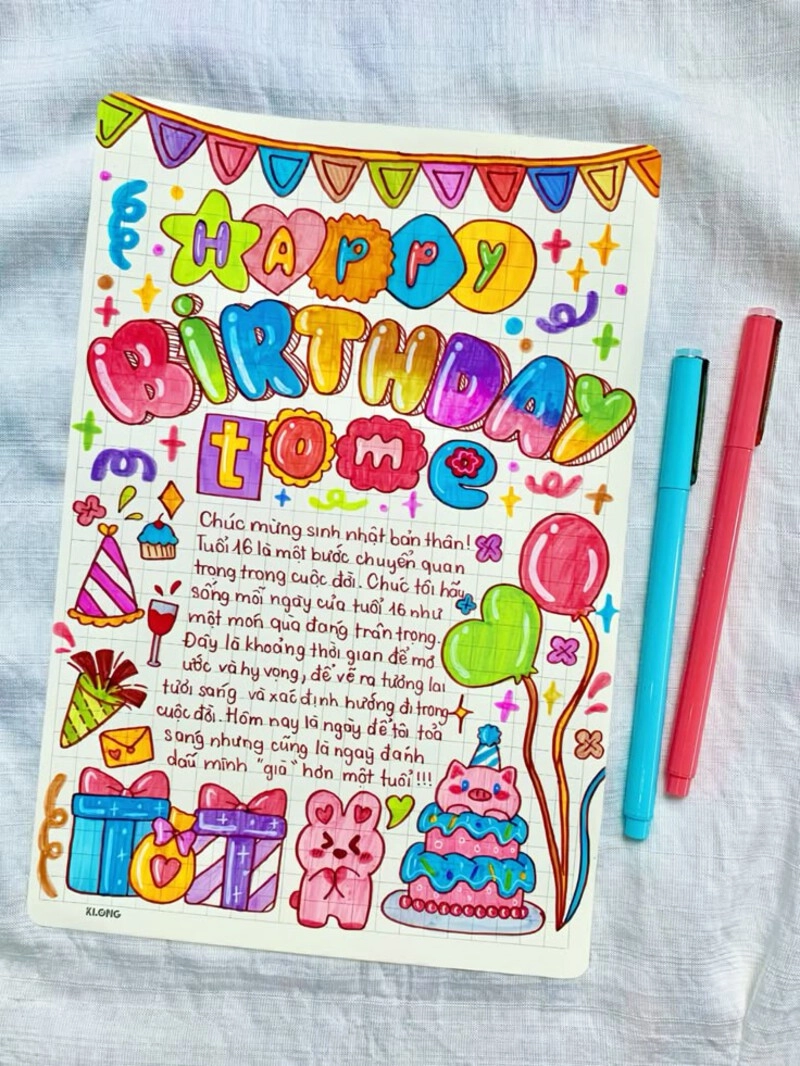 HAPPY
BiRTHDAY
to me
Chúc mừng sinh nhật bản thân!
Tuổi 16 là một bước chuyển quan
trọng trong cuộc đời. Chúc tôi hãy
sống mỗi ngày của tuổi 16 như
một món quà đáng trân trọng.
Đây là khoảng thời gian để mơ
ước và hy vọng, để vẽ ra tương lai
tươi sáng và xác định hướng đi trong
cuộc đời. Hôm nay là ngày để tôi toả
sáng nhưng cũng là ngày đánh
dấu mình "già" hơn một tuổi!!!
KLONG